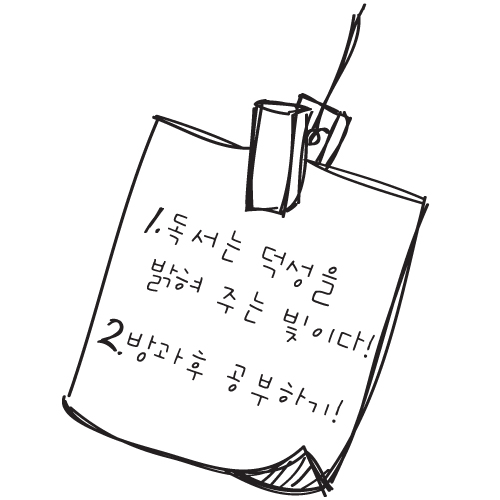 1. 독서는 덕성을
밝혀 주는 빛이다!
2. 방과후 공부하기!